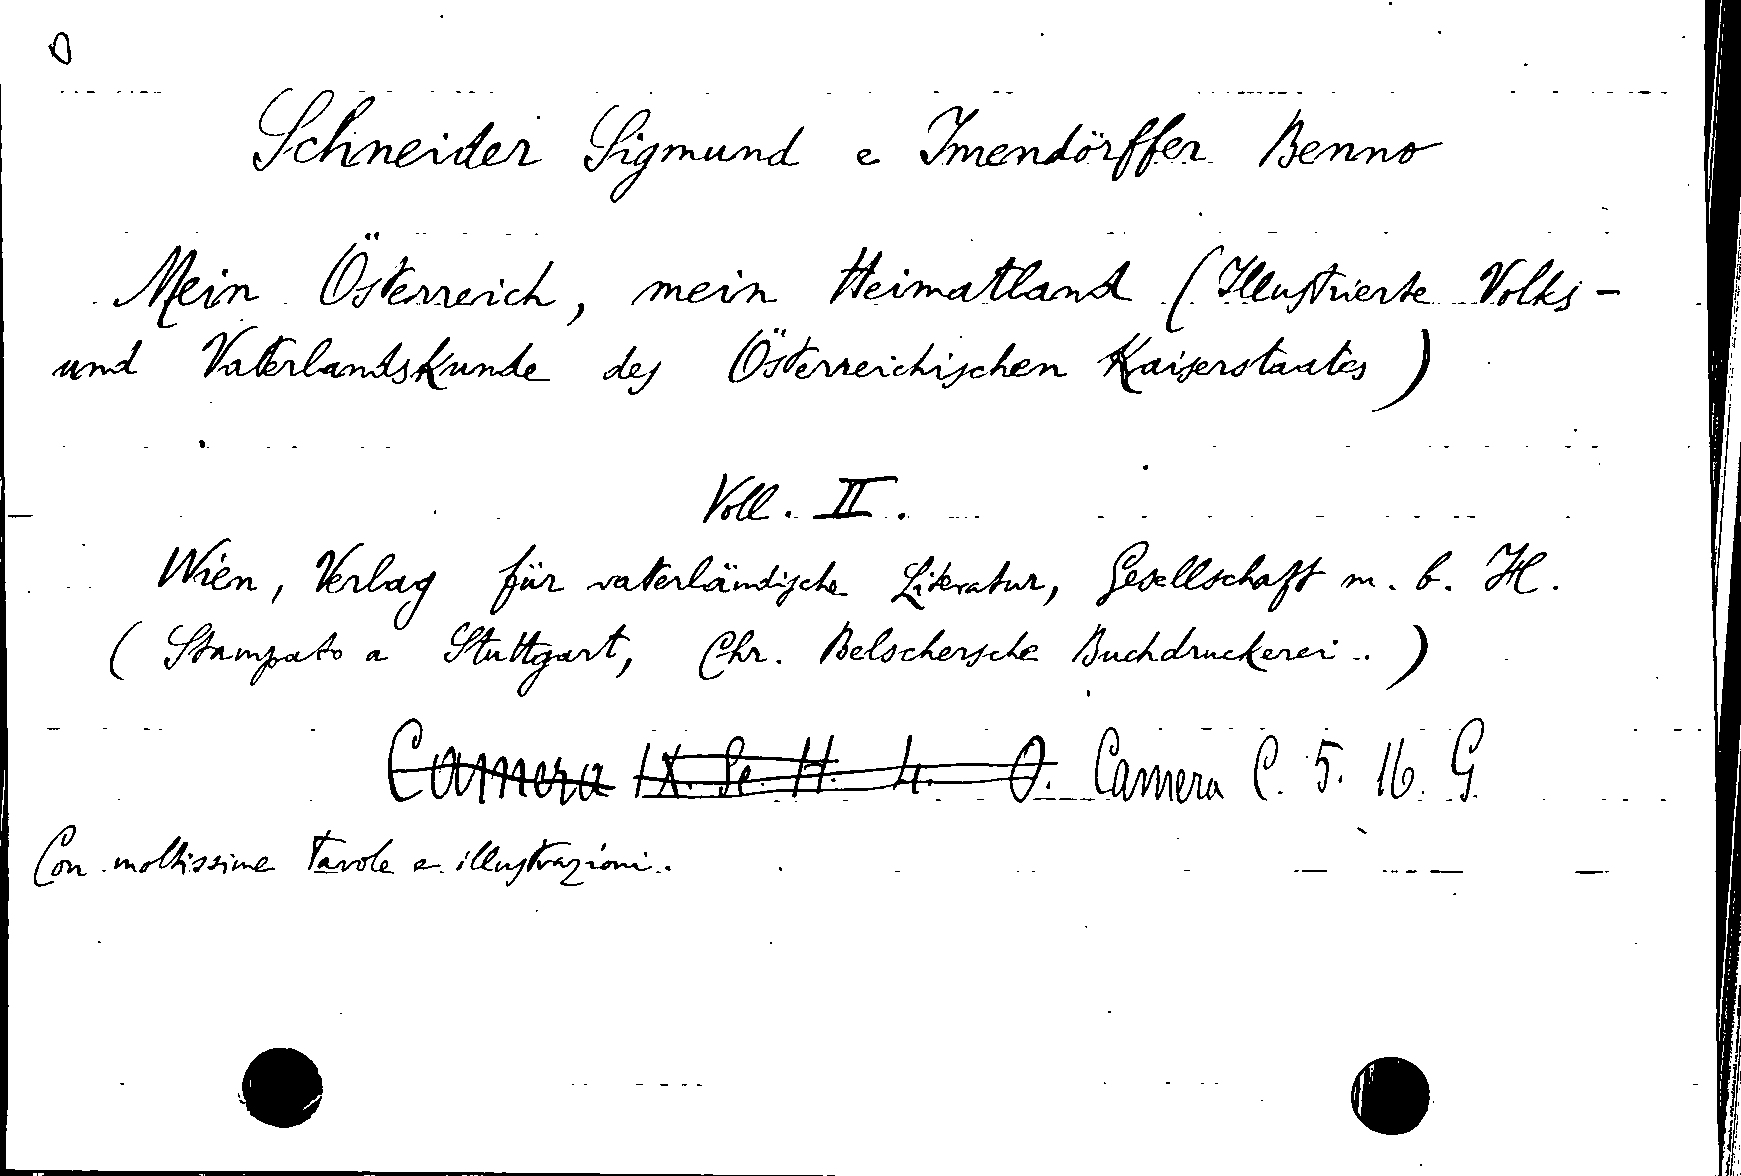 Schneider Sigmund e Imendörffer Benno
Mein Österreich, mein Heimatland (Illustrierte Volks-
und Vaterlandskunde des Österreichischen Kaiserstaates)
Voll. II.
Wien, Verlag für vaterländische Literatur, Gesellschaft m. b. H.
(Stampato a Stuttgart, Chr. Belschersche Buchdruckerei..)
Camera IX. Se. H. 4. O. Camera C. 5. 16. G
Con moltissime tavole e illustrazioni.